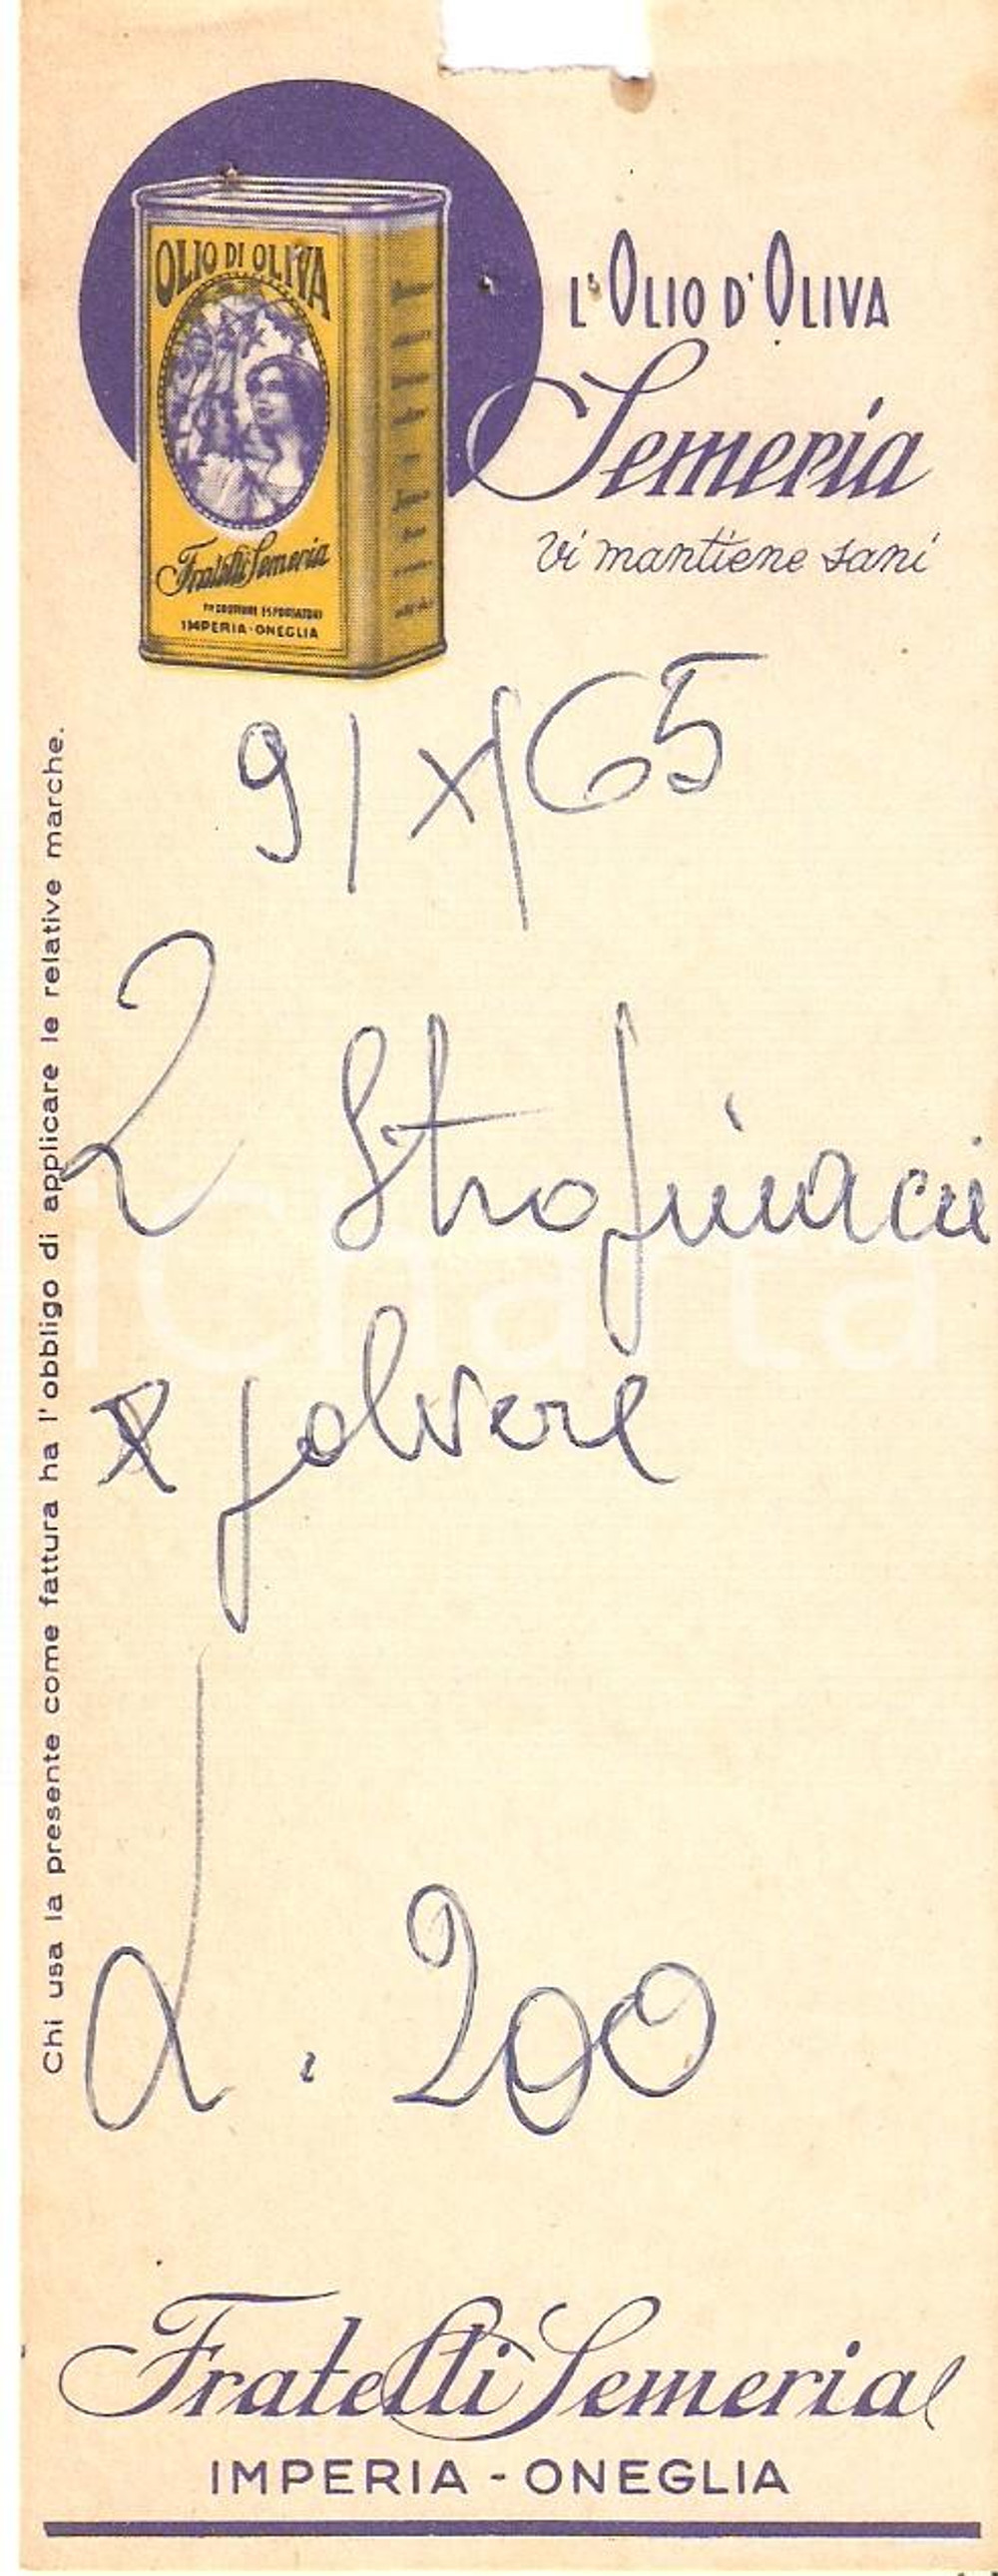 OLIO DI OLIVA
Fratelli Semeria
IMPERIA-ONEGLIA
L'OLIO D'OLIVA
Semeria
vi mantiene sani
9/X/65
2 Strofinacci
x polvere
L. 200
Chi usa la presente come fattura ha l'obbligo di applicare le relative marche.
iCharta
Fratelli Semeria
IMPERIA - ONEGLIA